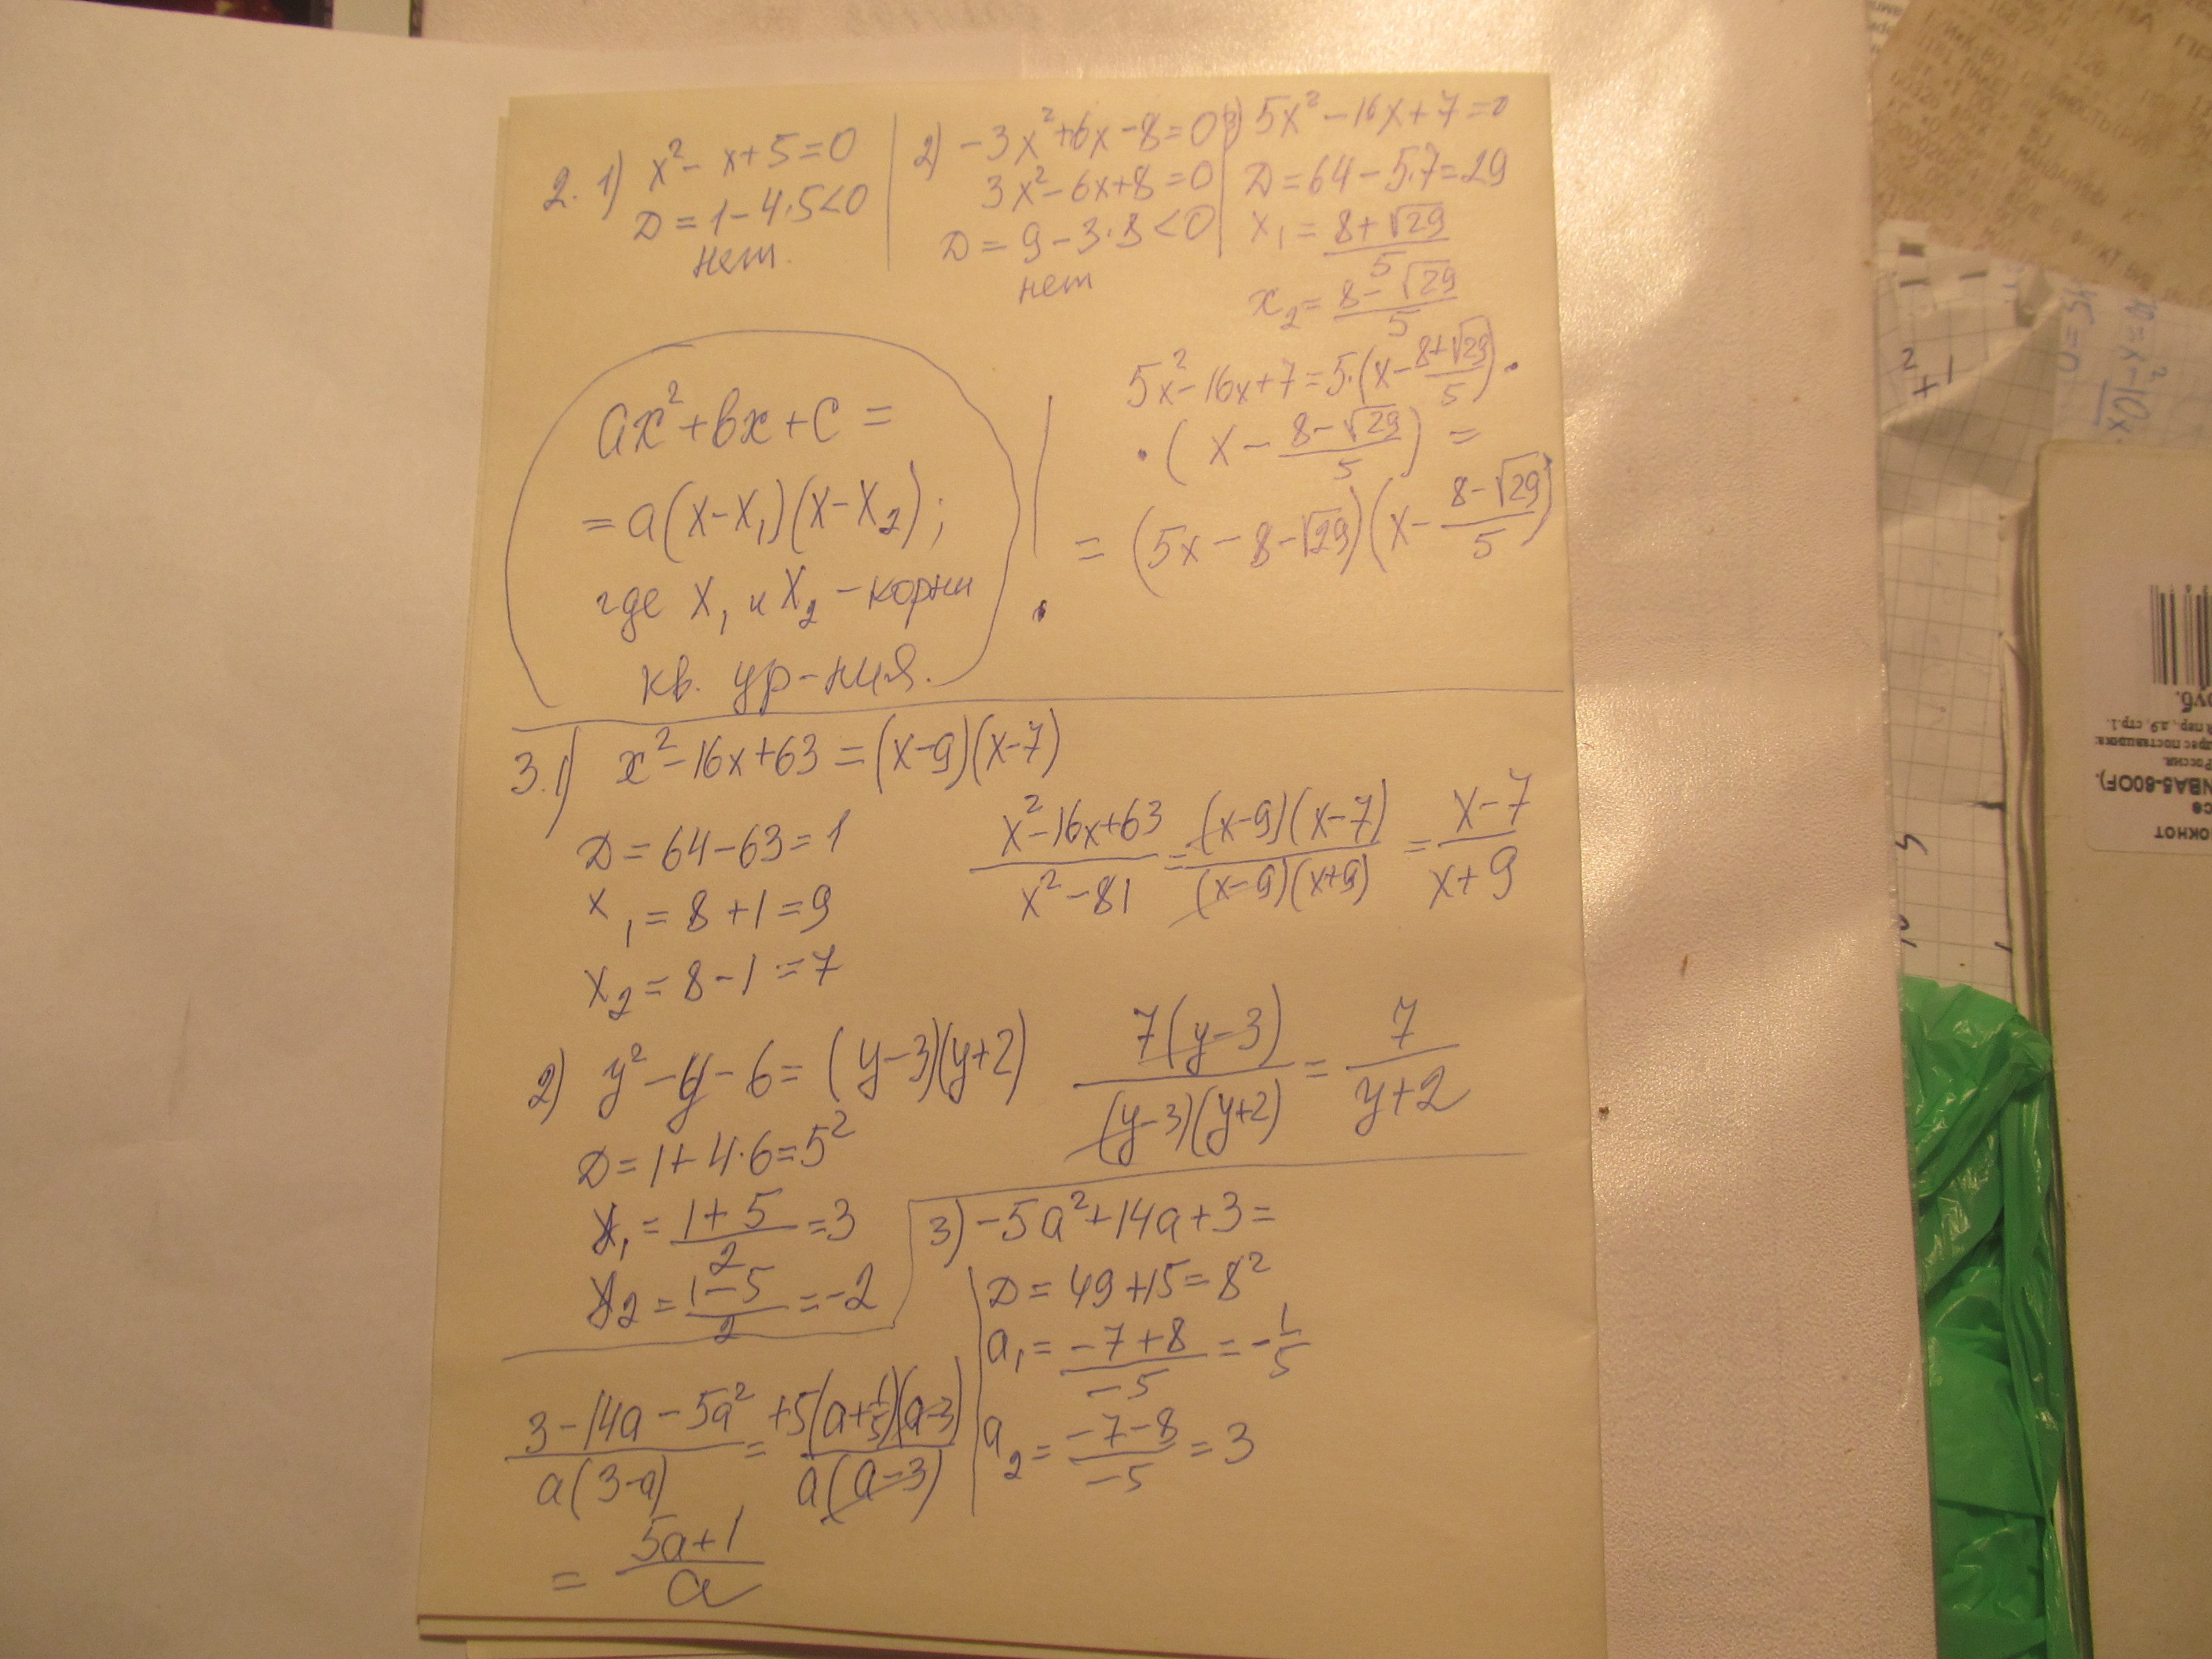 2. 1) x² - x + 5 = 0
D = 1 - 4·5 < 0
нет.
2) -3x² + 6x - 8 = 0
3x² - 6x + 8 = 0
D = 9 - 3·8 < 0
нет
3) 5x² - 16x + 7 = 0
D = 64 - 5·7 = 29
x₁ = (8 + √29)/5
x₂ = (8 - √29)/5
ax² + bx + c =
= a(x - x₁)(x - x₂);
где x₁ и x₂ - корни
кв. ур-ния.
5x² - 16x + 7 = 5·(x - (8 + √29)/5)·
·(x - (8 - √29)/5) =
= (5x - 8 - √29)(x - (8 - √29)/5)
3.1) x² - 16x + 63 = (x - 9)(x - 7)
D = 64 - 63 = 1
x₁ = 8 + 1 = 9
x₂ = 8 - 1 = 7
(x² - 16x + 63)/(x² - 81) = (x - 9)(x - 7)/(x - 9)(x + 9) = (x - 7)/(x + 9)
2) y² - y - 6 = (y - 3)(y + 2)
D = 1 + 4·6 = 5²
y₁ = (1 + 5)/2 = 3
y₂ = (1 - 5)/2 = -2
7(y - 3)/(y - 3)(y + 2) = 7/(y + 2)
3) -5a² + 14a + 3 =
D = 49 + 15 = 8²
a₁ = (-7 + 8)/-5 = -1/5
a₂ = (-7 - 8)/-5 = 3
(3 - 14a - 5a²)/a(3 - a) = +5(a + 1/5)(a - 3)/a(a - 3)
= (5a + 1)/a